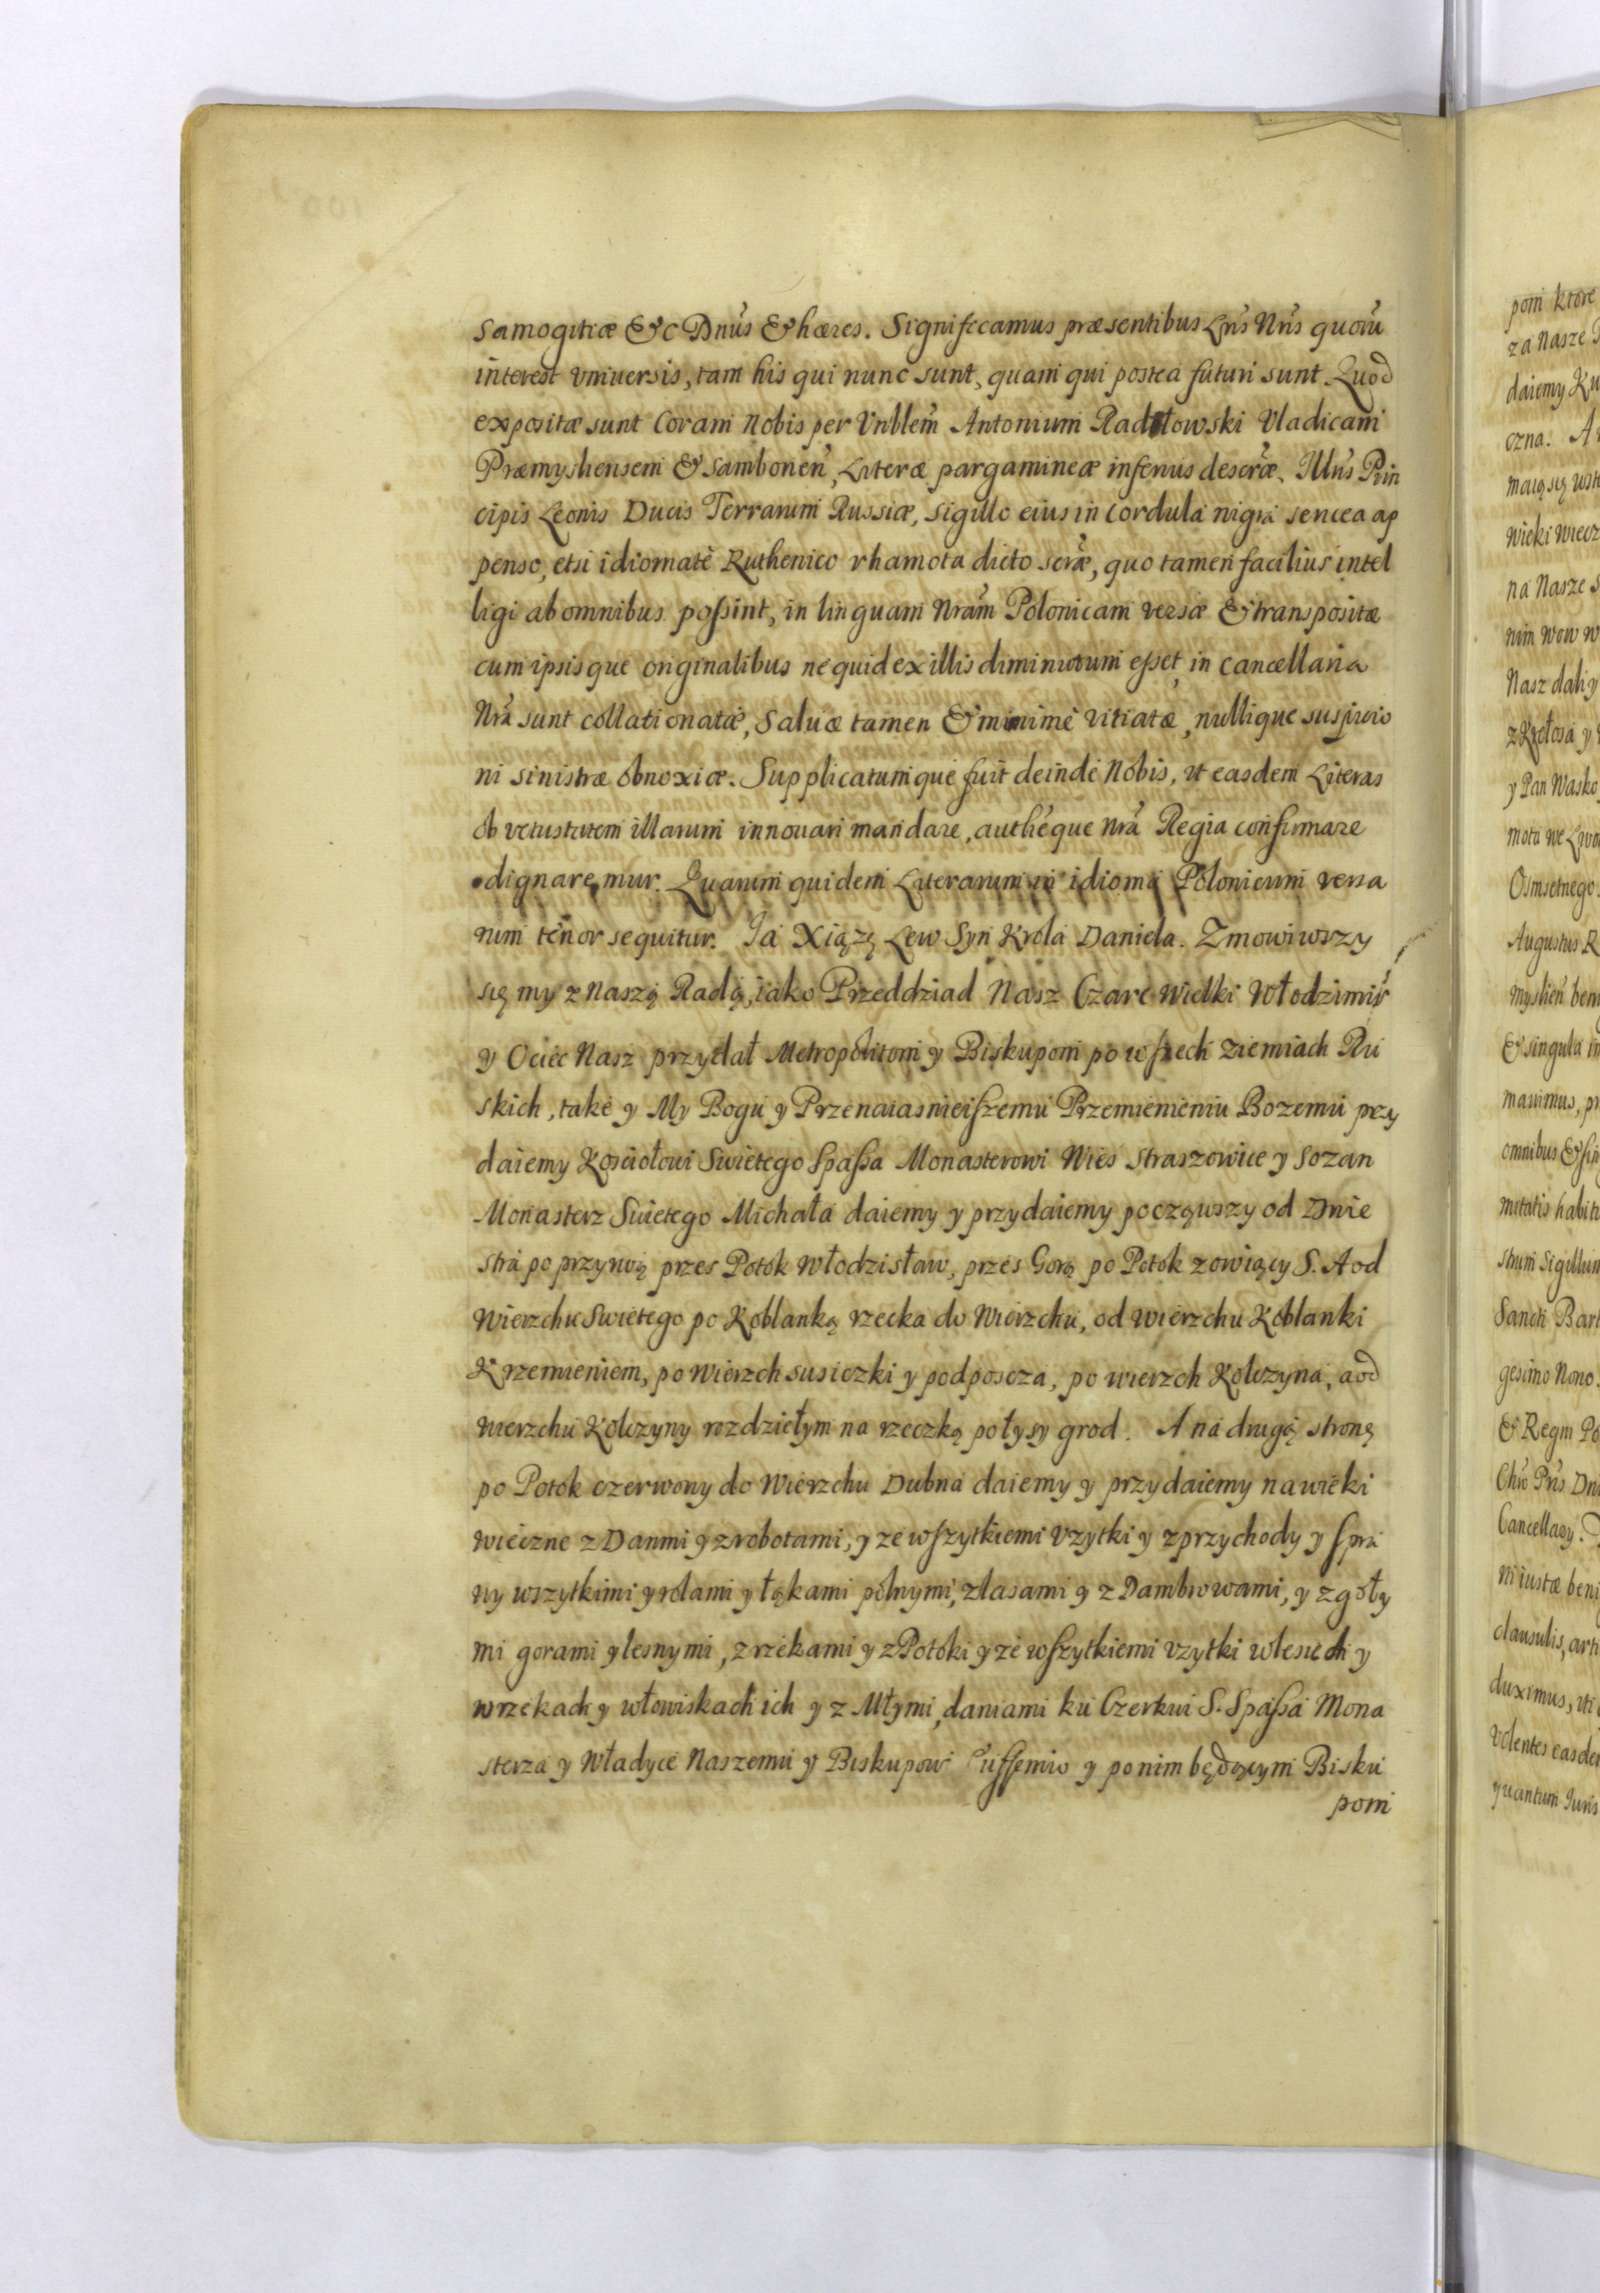 Samogitiæ &c Dnus & hæres. Significamus præsentibus Lris Nris quoru
interest vniuersis, tam his qui nunc sunt, quam qui postea futuri sunt Quod
expositæ sunt Coram Nobis per Vnblem Antonium Radiłowski Vladicam
Præmysliensem & Samborien, Literæ pargamineæ inferius descræ, Illris Prin
cipis Leonis Ducis Terrarum Russiæ, sigillo eius in cordula nigra sericea ap
penso, etsi idiomate Ruthenico rhamota dicto scræ, quo tamen facilius intel
ligi ab omnibus poſsint, in linguam Nram Polonicam versæ & transpositæ
cum ipsisque originalibus ne quid ex illis diminutum eſset, in cancellaria
Nra sunt collationatæ, Saluæ tamen & minime vitiatæ, nullique suspicio
ni sinistræ obnoxiæ. Supplicatumque fuit deinde Nobis, vt easdem Literas
ob vetustatem illarum innouari mandare, auth'eque nra Regia confirmare
dignaremur. Quarum quidem Literarum in idioma Polonicum versa
rum tenor sequitur. Ia Xiążę Lew Syn Krola Daniela. Zmowiwszy
się my z Naszą Radą, iako Przeddziad Nasz Czarc Wielki Włodzimir
y Ociec Nasz przydał Metropolitom y Biskupom po wſzech ziemiach Ru
skich, take y My Bogu y Przenaiasnieiſzemu Przemienieniu Bozemu przy
daiemy Kosciołowi Swietego Spaſsa Monasterowi Wies Straszowice y Sozan
Monasterz Swietego Michała daiemy y przydaiemy począwszy od Dnie
stra po przywą przes Potok Włodzisław, przes Gorą po Potok zowiący S. A od
Wierzchu Swietego po Koblanką rzecka do Wierzchu, od wierzchu Koblanki
Krzemieniem, po Wierzch susiczki y podposcza, po wierzch Kolczyna, a od
wierzchu Kolczyny rozdziełym na rzeczką połysy grod. A na drugą stroną
po Potok czerwony do Wierzchu Dubna daiemy y przydaiemy na wieki
wieczne z Danmi y z robotami, y ze wſzytkiemi vzytki y z przychody y ſpra
wy wszytkimi y rolami y łąkami polnymi, z lasami y z Dambrowami, y z goły
mi gorami y lesnymi, z rzekami y z Potoki y ze wſzytkiemi vzytki w lesiech y
w rzekach y w łowiskach ich y z Młymi, daniami ku Czerkwi S. Spaſsa Mona
sterza y Władyce Naszemu y Biskupowi y po nim będącym Bisku
pom